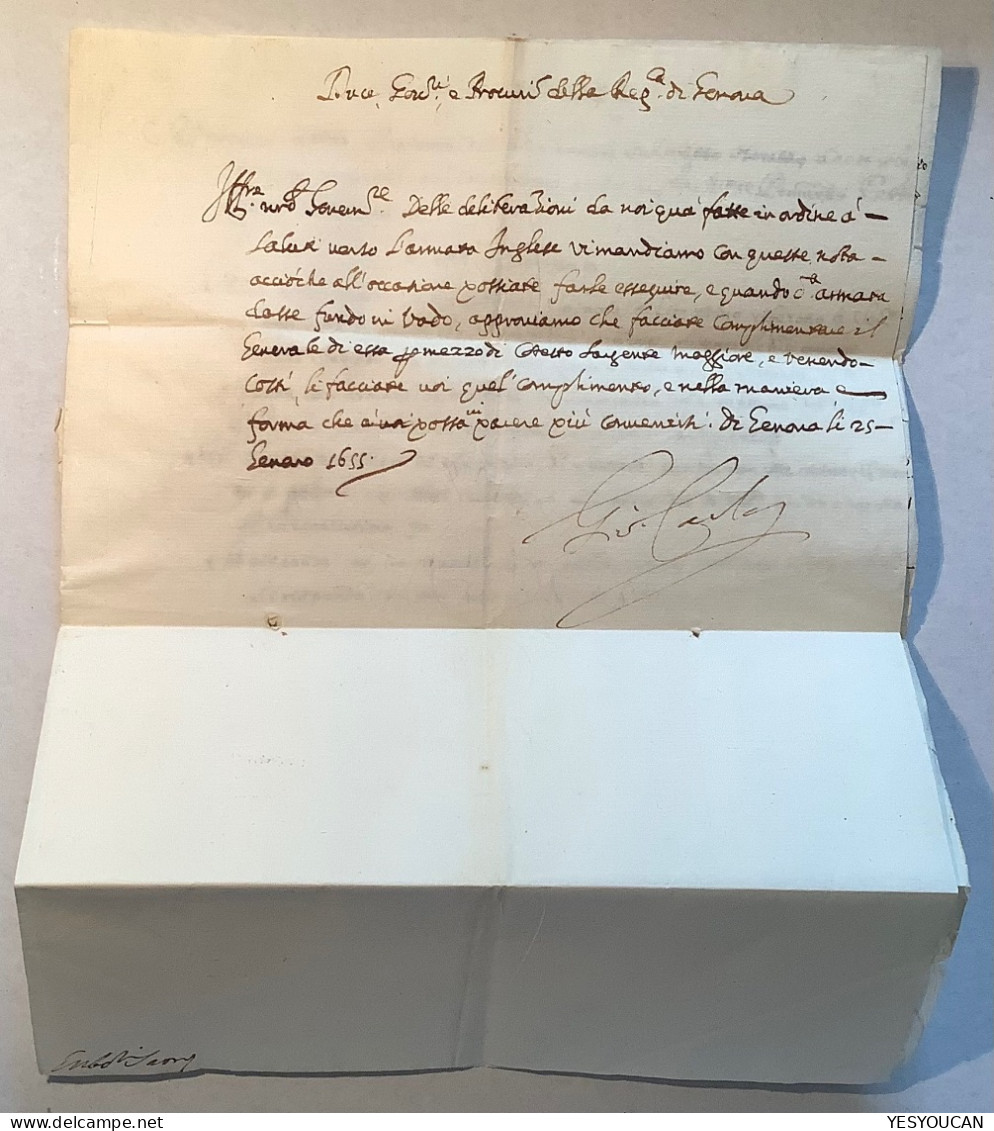 Duce, Gov.ri, e Procuri della Rep.ca di Genova
Delle deliberazioni da noi quà fatte in ordine á
saluti verso l'armata Inglese vi mandiamo con queste nota
acciòche all'occasione possiate farle esseguire, e quando d.a armata
dasse fundo in Vado, approviamo che facciate complimentare il
Generale di essa per mezzo di cotesto Sargente maggiore, e venendo
costì, li facciate voi quel complimento, e nella maniera, e
forma che à voi possa parere più convenirsi. Di Genova li 25
Genaro 1655.
Gio. Carlo
YESYOUCAN